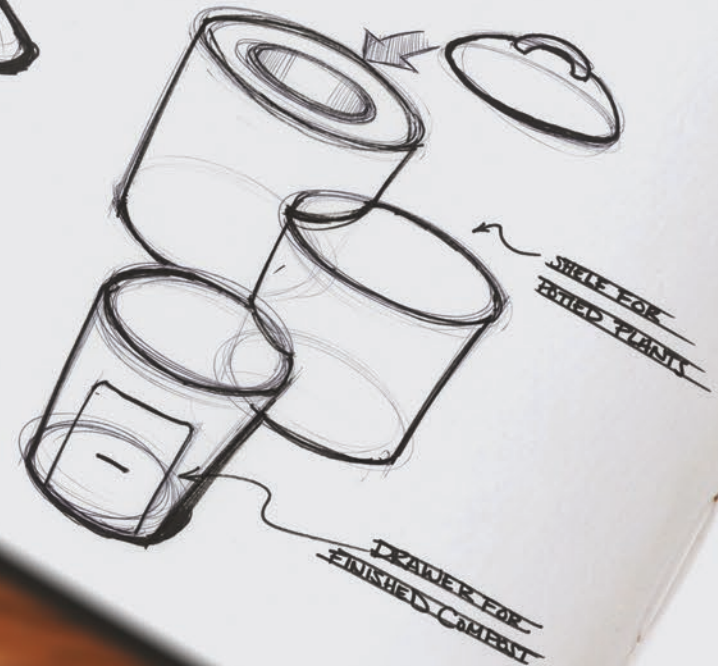 SHELF FOR
POTTED PLANTS
DRAWER FOR
FINISHED COMPOST